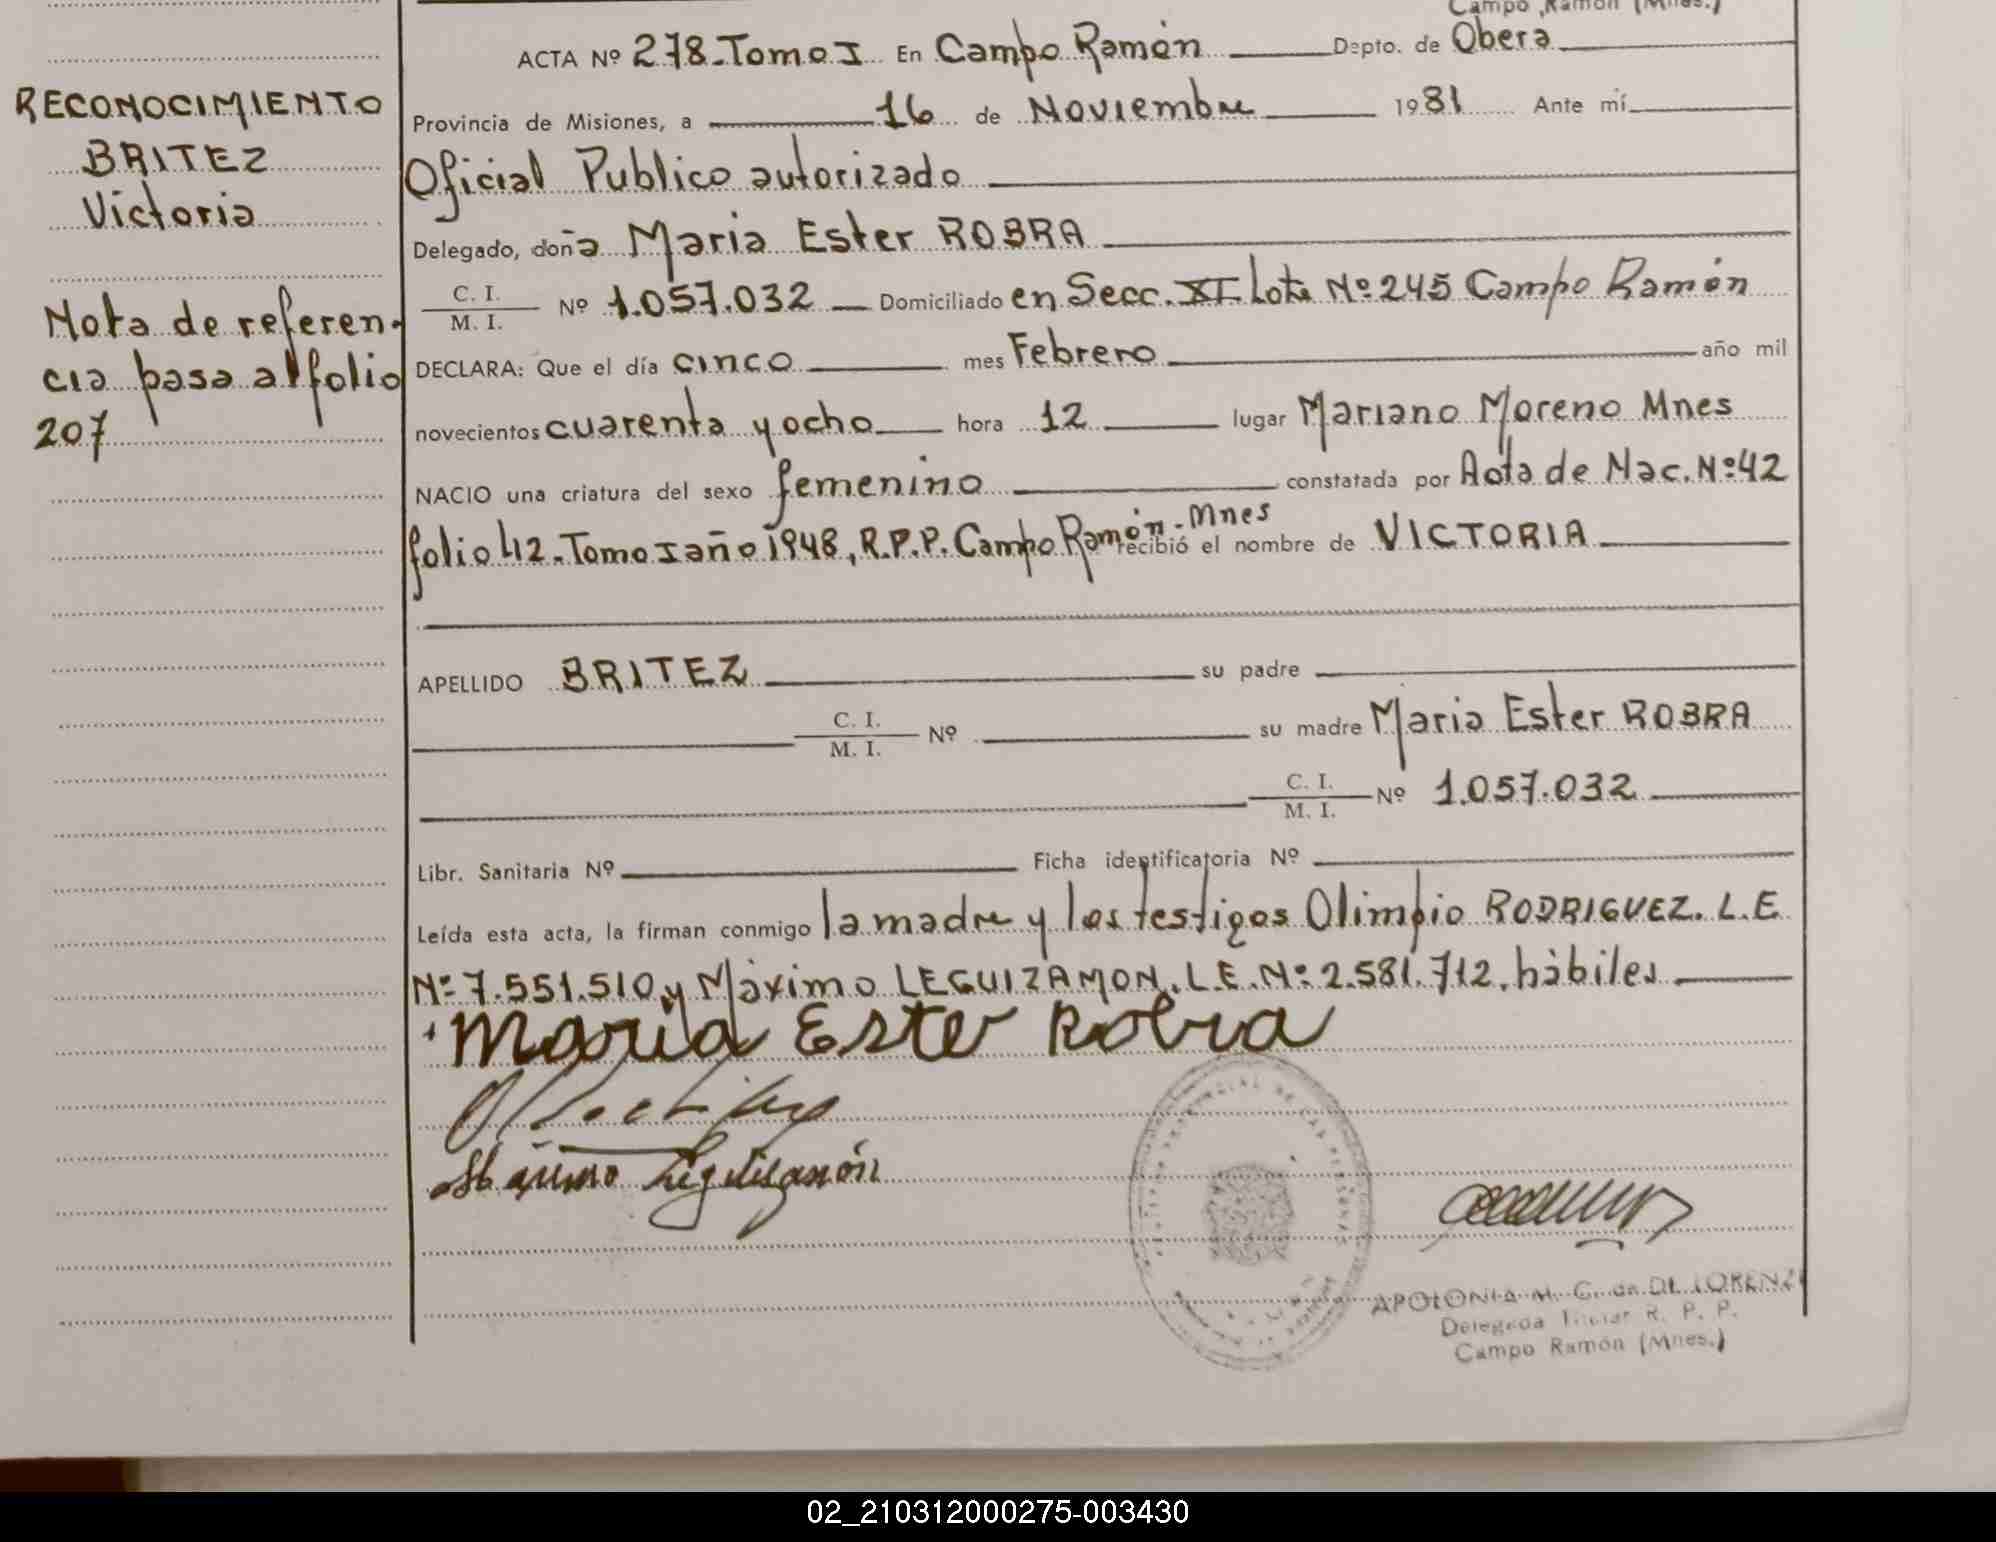 Campo Ramón (Mnes.)
ACTA Nº 278. Tomo I En Campo Ramón Depto. de Obera
RECONOCIMIENTO
BRITEZ
Victoria
Nota de referen-
cia pasa al folio
207
Provincia de Misiones, a 16 de Noviembre 1981 Ante mí
Oficial Publico autorizado
Delegado, doña Maria Ester ROBRA
C. I.
M. I.
Nº 1.057.032 Domiciliado en Secc. XI Lote Nº 245 Campo Ramón
DECLARA: Que el día cinco mes Febrero año mil
novecientos cuarenta y ocho hora 12 lugar Mariano Moreno Mnes
NACIO una criatura del sexo femenino constatada por Acta de Nac. Nº 42
folio 412. Tomo I año 1948, R.P.P. Campo Ramón - Mnes recibió el nombre de VICTORIA
APELLIDO BRITEZ su padre
C. I.
M. I.
Nº su madre Maria Ester ROBRA
C. I.
M. I.
Nº 1.057.032
Libr. Sanitaria Nº Ficha identificatoria Nº
Leída esta acta, la firman conmigo la madre y los testigos Olimpio RODRIGUEZ. L.E.
Nº 7.551.510 y Máximo LEGUIZAMON. L.E. Nº 2.581.712. hábiles
Maria Ester Robra
Máximo Leguisamón
APOLONIA M. G. de DE LORENZI
Delegada Titular R. P. P.
Campo Ramón (Mnes.)
02_210312000275-003430